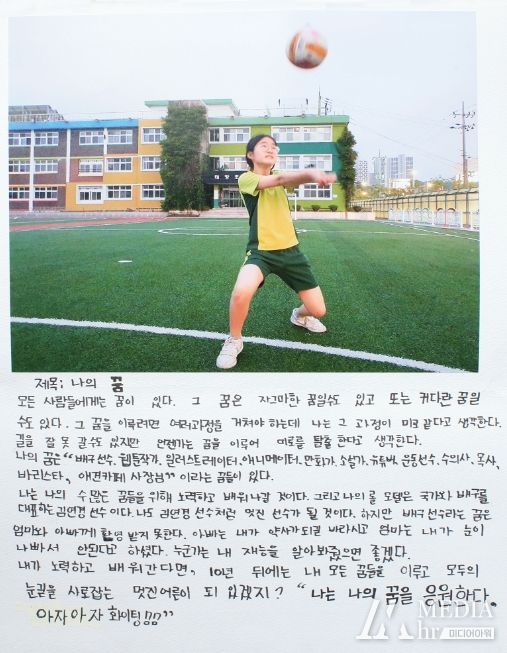 제목: 나의 꿈
모든 사람들에게는 꿈이 있다. 그 꿈은 자그마한 꿈일수도 있고 또는 커다란 꿈일
수도 있다. 그 꿈을 이루려면 여러과정을 거쳐야 하는데 나는 그 과정이 미로 같다고 생각한다.
길을 잘 못 갈수도 있지만 언젠가는 꿈을 이루어 미로를 탈출 한다고 생각한다.
나의 꿈은 "배구선수, 웹툰작가, 일러스트레이터, 애니메이터, 만화가, 소설가, 유튜버, 운동선수, 수의사, 목사,
바리스타, 애견카페 사장님" 이라는 꿈들이 있다.
나는 나의 수많은 꿈들을 위해 노력하고 배워나갈 것이다. 그리고 나의 롤 모델은 국가와 배구를
대표하는 김연경 선수이다. 나도 김연경 선수처럼 멋진 선수가 될 것이다. 하지만 배구선수라는 꿈은
엄마와 아빠께 환영 받지 못한다. 아빠는 내가 약사가 되길 바라시고 엄마는 내가 눈이
나빠서 안된다고 하셨다. 누군가는 내 재능을 알아봐줬으면 좋겠다.
내가 노력하고 배워간다면, 10년 뒤에는 내 모든 꿈들을 이루고 모두의
눈길을 사로잡는 멋진어른이 되 있겠지? "나는 나의 꿈을 응원하다.
아자아자 화이팅"
MEDIA
hr 미디어아워